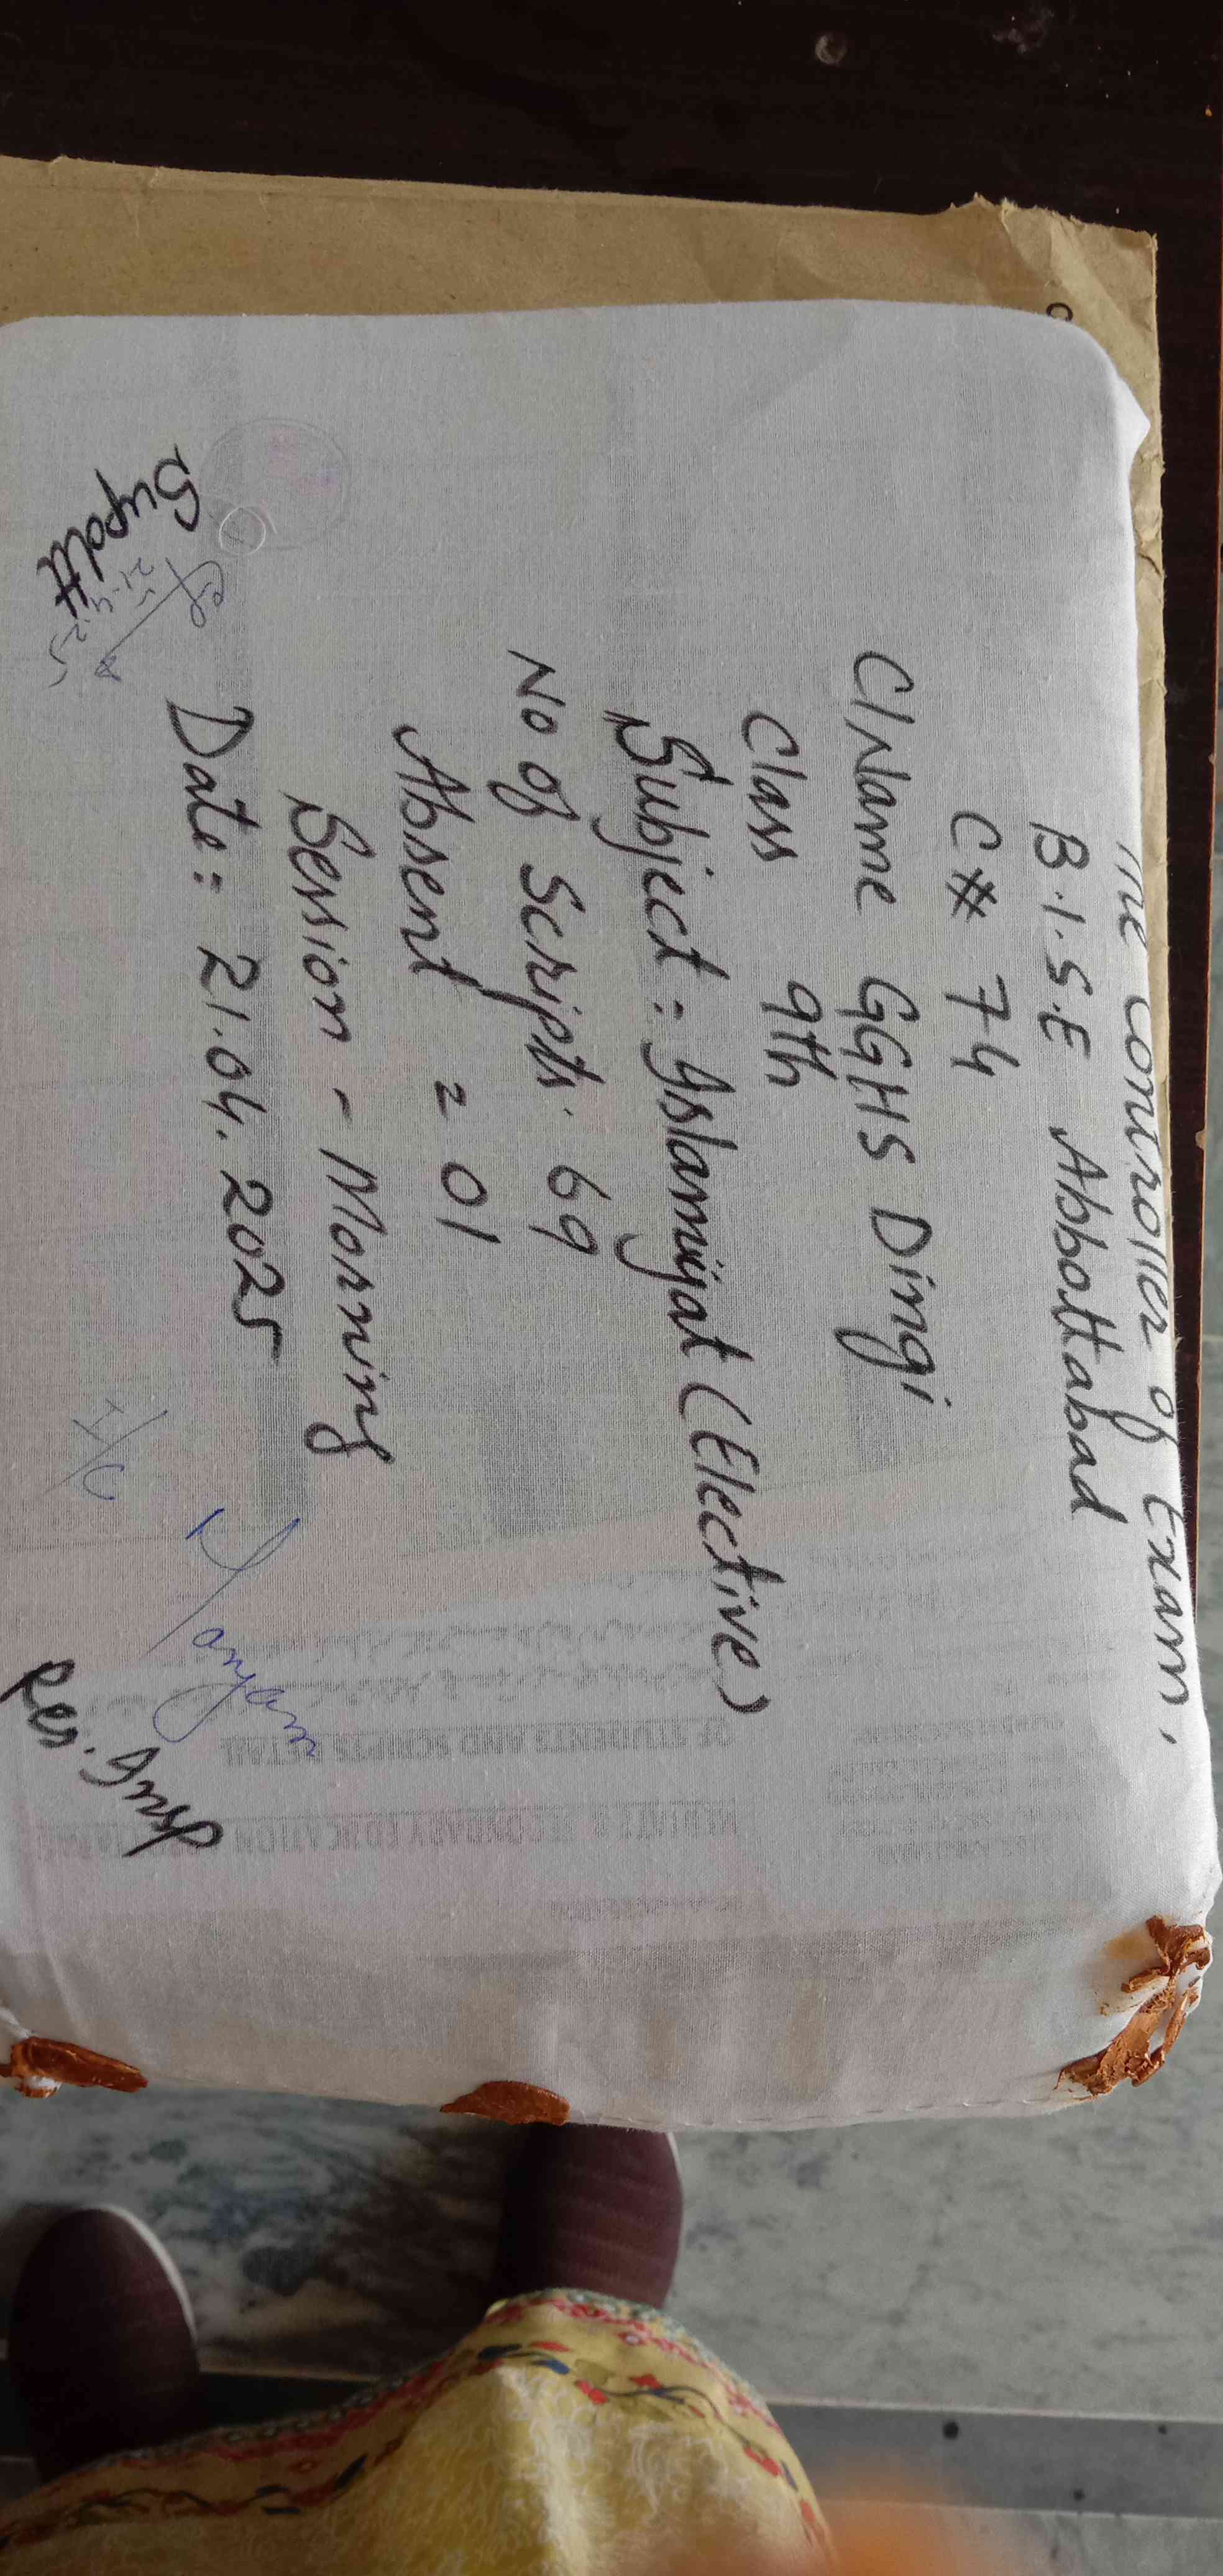 The Controller of Exam,
B.I.S.E Abbottabad
C# 74
C/Name GGHS Dingi
Class 9th
Subject = Islamiyat (Elective)
No of Scripts. 69
Absent = 01
Session - Morning
Date = 21.04.2025
Supdtt
21-4-25
Res. Insp
OF STUDENTS AND SCRIPTS DETAIL